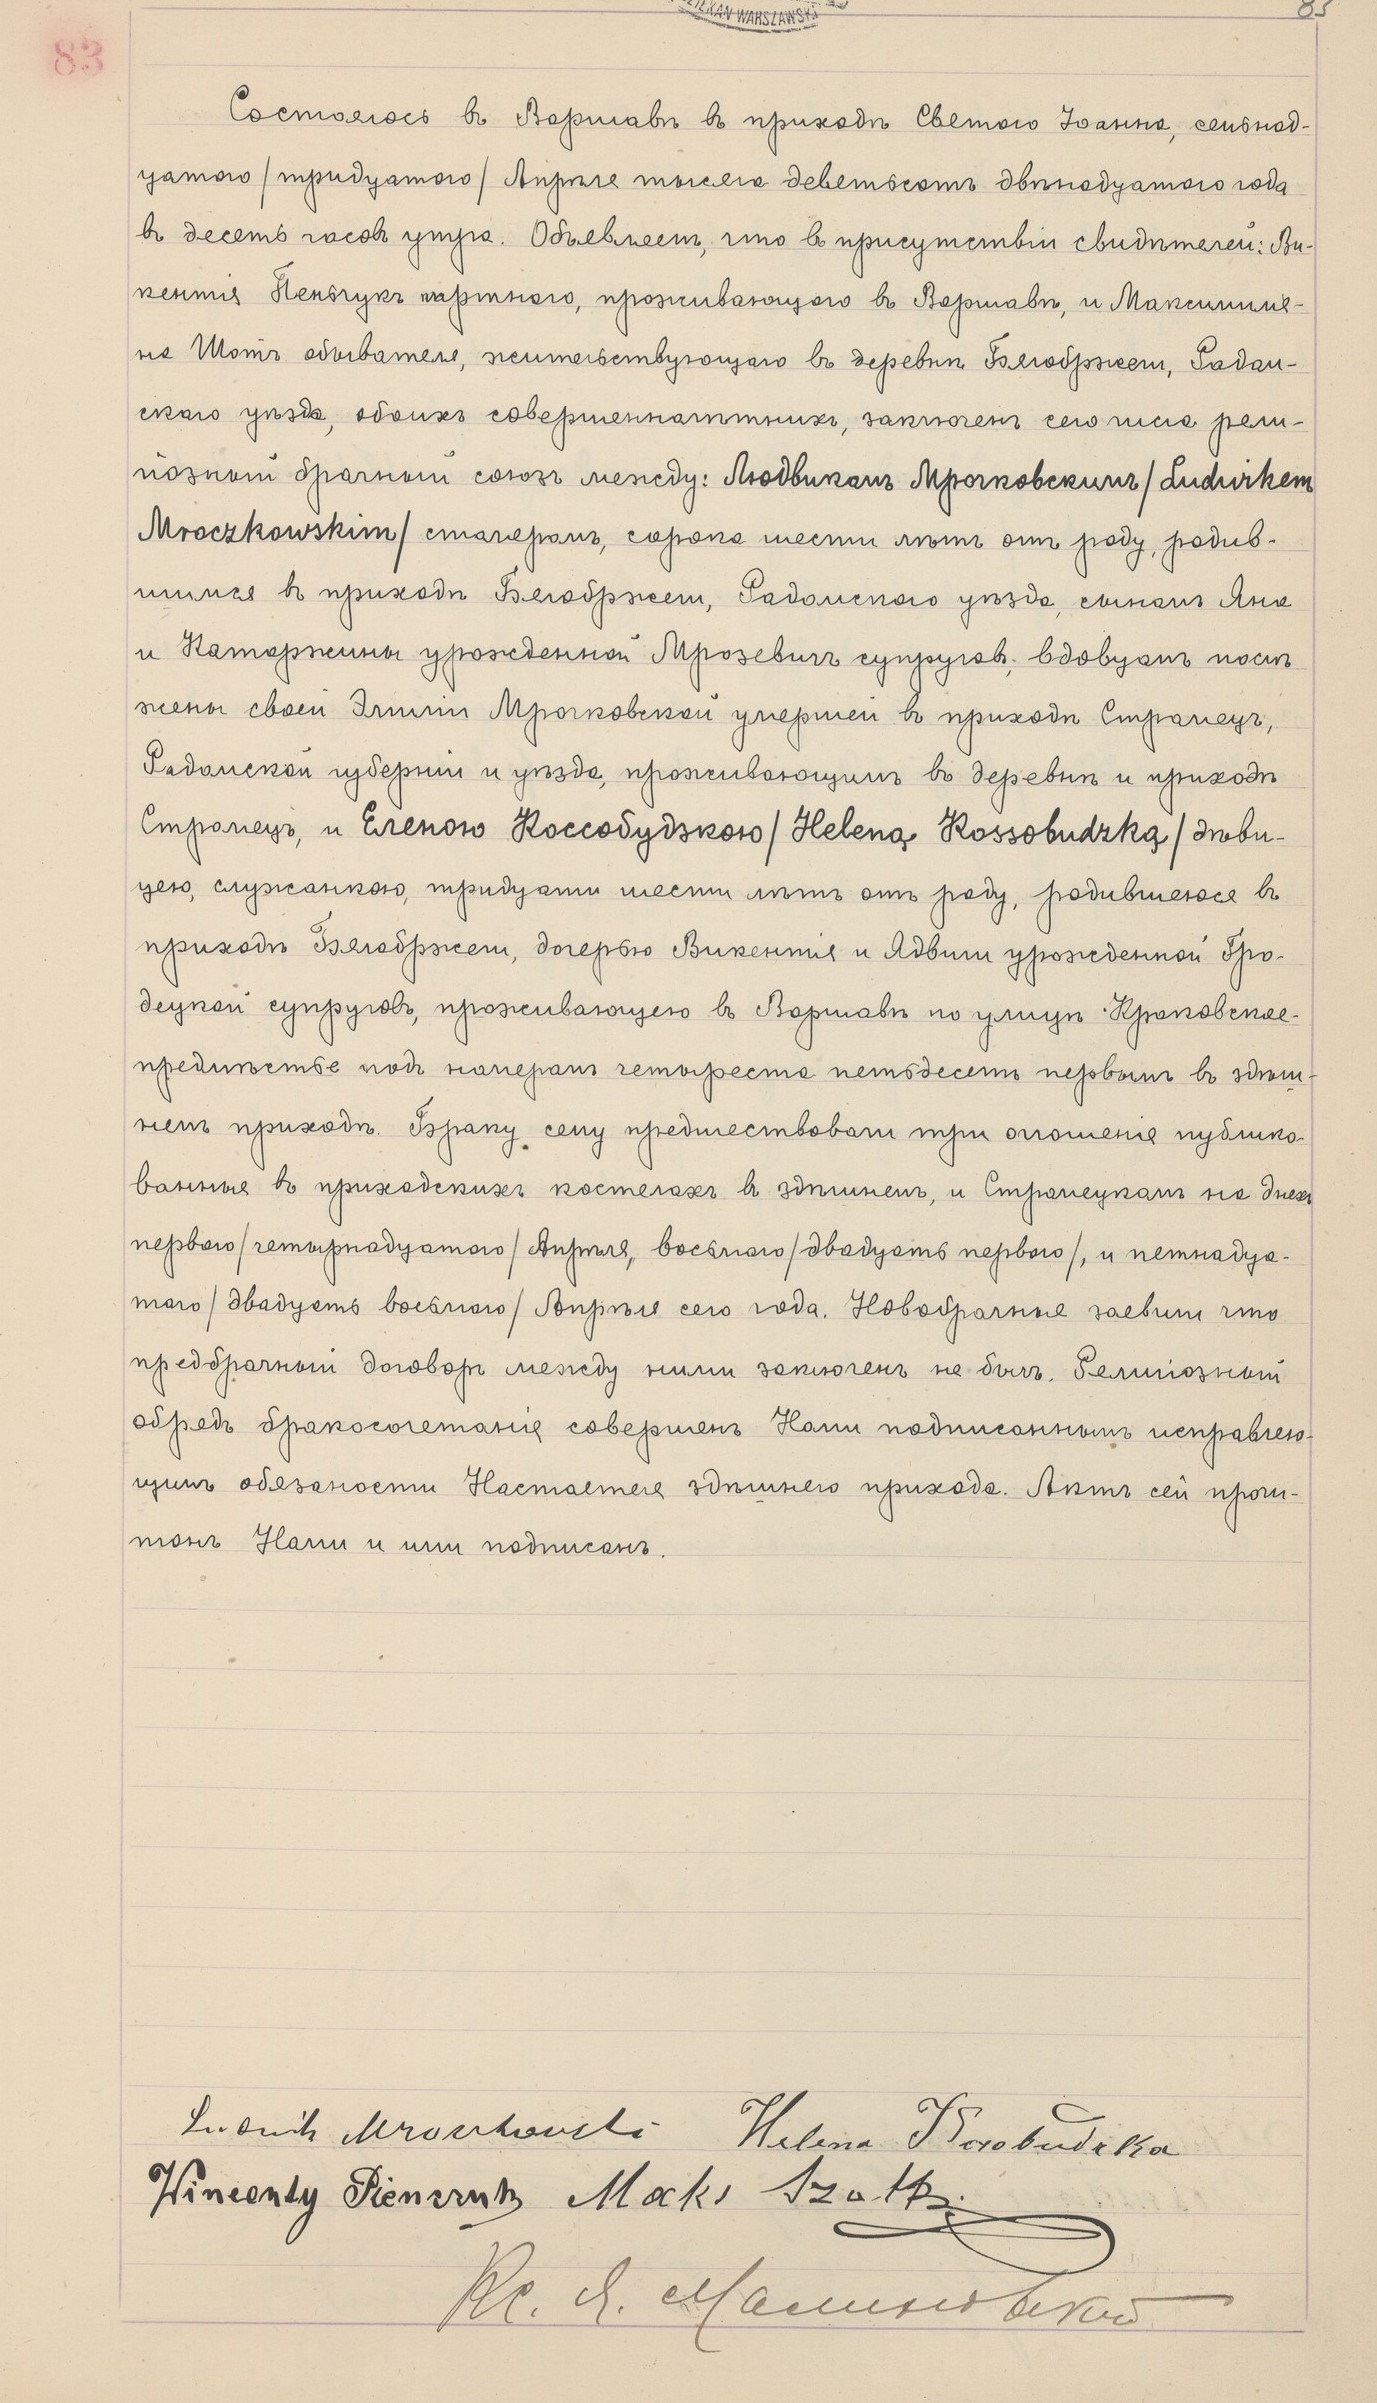 DZIEKAN WARSZAWSKI
85
83
Состоялось въ Варшавѣ въ приходѣ Святаго Іоанна, семьнад-
цатого / тридцатого / Апрѣля тысяча девятьсотъ двѣнадцатого года
въ десять часов утра. Объявляем, что въ присутствіи свидѣтелей: Ви-
кентія Пеньчукъ, проживающаго въ Варшавѣ, и Максимилія-
на Шотъ обывателя, жительствующаго въ деревнѣ Бялобржеги, Радом-
скаго уѣзда, обоихъ совершеннолѣтнихъ, заключенъ сего числа рели-
гіозный брачный союзъ между: Людвикомъ Мрочковскимъ / Ludwikem
Mroczkowskim / столяромъ, сорока шести лѣтъ отъ роду, родив-
шимся въ приходѣ Бялобржеги, Радомскаго уѣзда, сыномъ Яна
и Катаржины урожденной Мрозевичъ супруговъ, вдовцомъ послѣ
жены своей Эмиліи Мрочковской умершей въ приходѣ Стромецъ,
Радомской губерніи и уѣзда, проживающимъ въ деревнѣ и приходѣ
Стромецъ, и Еленою Коссобудзкою / Heleną Kossobudzką / дѣви-
цею, служанкою, тридцати шести лѣтъ отъ роду, родившеюся въ
приходѣ Бялобржеги, дочерью Викентія и Ядвиги урожденной Гро-
децкой супруговъ, проживающею въ Варшавѣ по улицѣ Краковское-
предмѣстье подъ номеромъ четыреста пятьдесятъ первымъ въ здѣш-
немъ приходѣ. Браку сему предшествовали три оглошенія публико-
ванныя въ приходскихъ костелахъ въ здѣшнемъ, и Стромецкомъ на дняхъ
первого / четырнадцатого / Апрѣля, восьмого / двадцать первого /, и пятнадца-
того / двадцать восьмого / Апрѣля сего года. Новобрачные заявили что
предбрачный договоръ между ними заключенъ не былъ. Религіозный
обрядъ бракосочетанія совершенъ Нами подписаннымъ исправляю-
щимъ обязаности Настоятеля здѣшнего прихода. Актъ сей прочи-
танъ Нами и ими подписанъ.
Ludwik Mroczkowski Helena Kossobudzka
Wincenty Pienczuk Maks Szot
Кс. Я. Малиновский